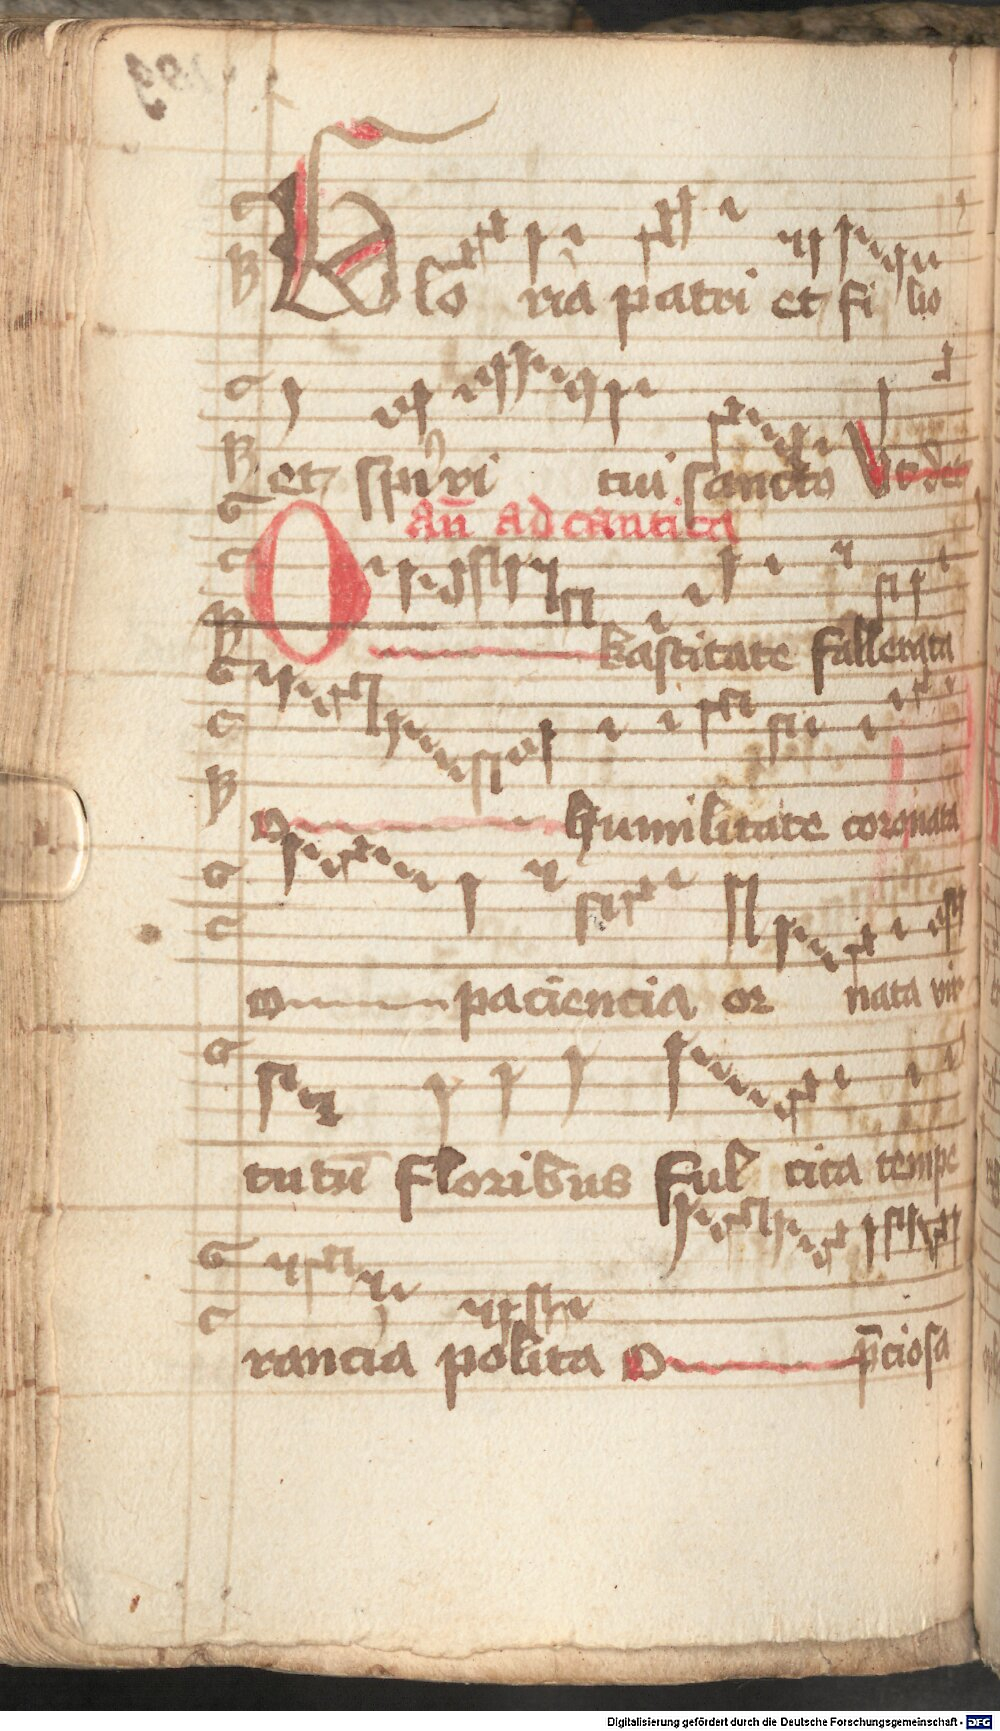 Glo ria patri et fi lio
et spiri tui sancto Vt det
Añ Ad cantica
O kastitate fallerata
o humilitate coronata
o paciencia or nata vir
tutū floribus ful cita tempe
rancia polita O p̄ciosa
Digitalisierung gefördert durch die Deutsche Forschungsgemeinschaft - DFG